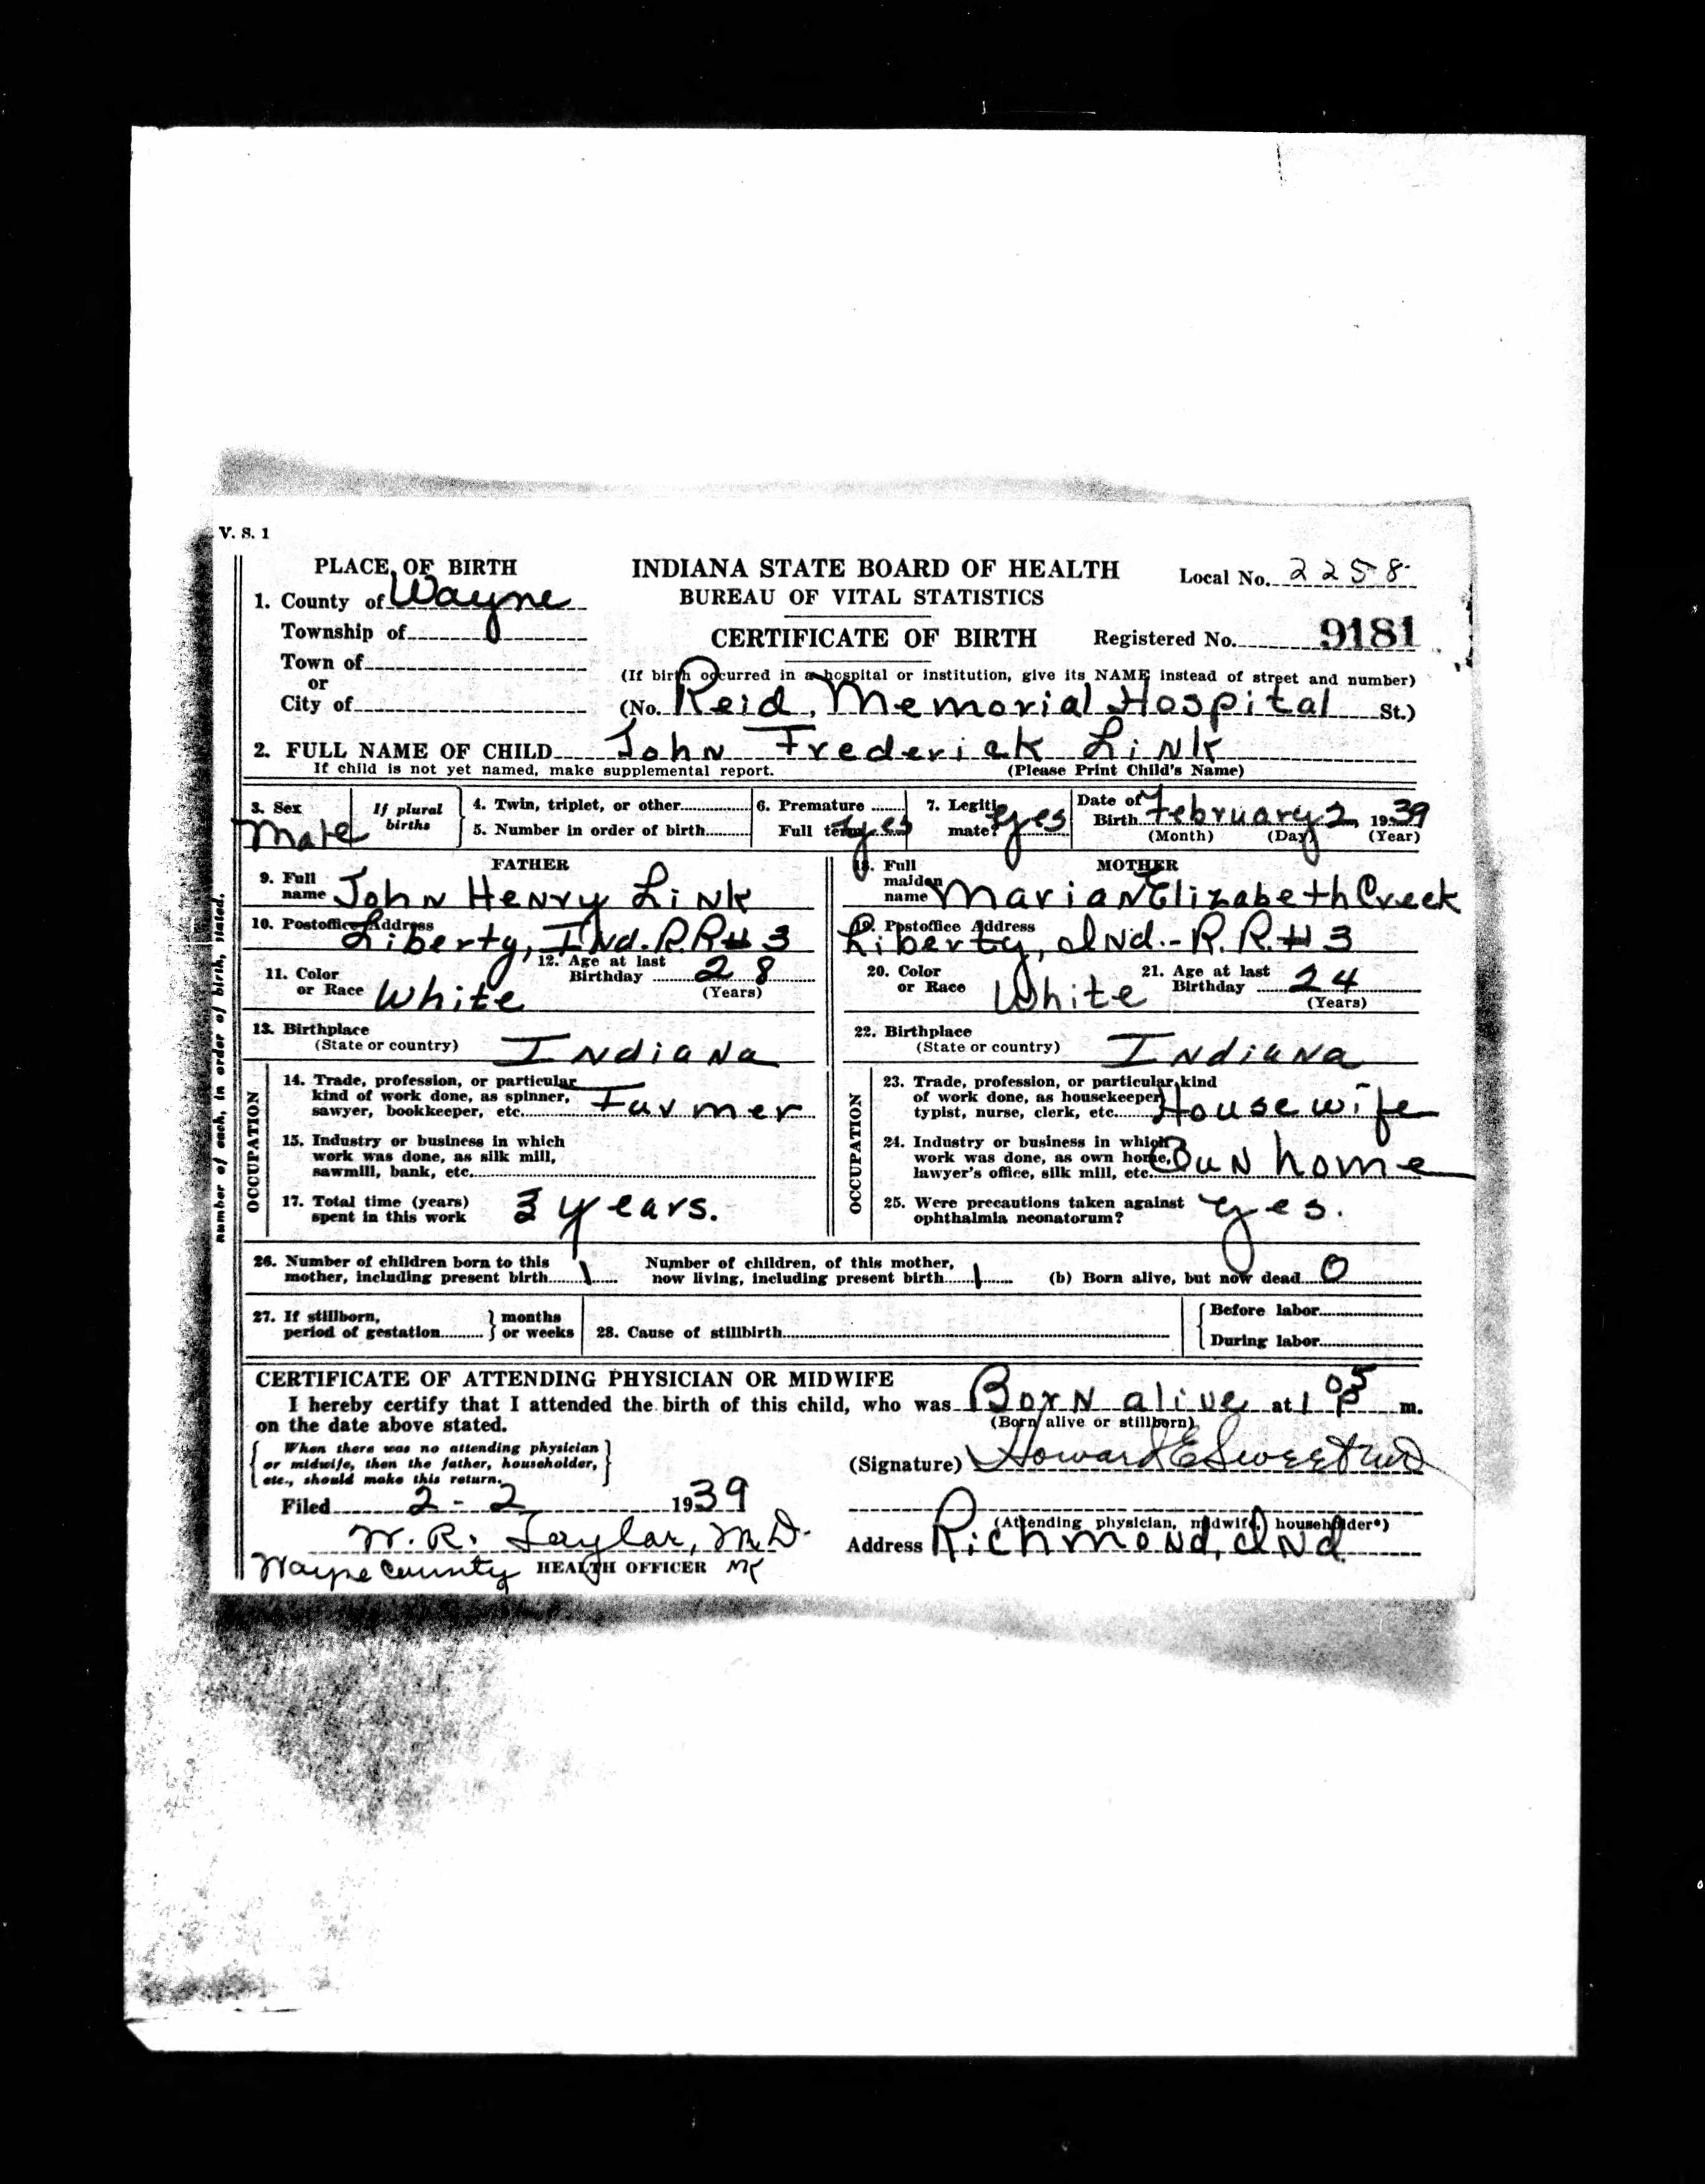 V. S. 1
PLACE OF BIRTH
INDIANA STATE BOARD OF HEALTH
Local No. 2258
1. County of Wayne
BUREAU OF VITAL STATISTICS
Township of
CERTIFICATE OF BIRTH
Registered No. 9181
Town of
or
City of
(If birth occurred in a hospital or institution, give its NAME instead of street and number)
(No. Reid Memorial Hospital St.)
2. FULL NAME OF CHILD John Frederick Link
If child is not yet named, make supplemental report. (Please Print Child's Name)
3. Sex Male
If plural births
4. Twin, triplet, or other
5. Number in order of birth
6. Premature
Full term yes
7. Legitimate? yes
Date of Birth February 2, 1939
(Month) (Day) (Year)
FATHER
9. Full name John Henry Link
10. Postoffice Address Liberty, Ind. R.R # 3
11. Color or Race White
12. Age at last Birthday 28
(Years)
13. Birthplace
(State or country) Indiana
OCCUPATION
14. Trade, profession, or particular
kind of work done, as spinner,
sawyer, bookkeeper, etc. Farmer
15. Industry or business in which
work was done, as silk mill,
sawmill, bank, etc.
17. Total time (years)
spent in this work 3 years.
MOTHER
18. Full maiden name Marian Elizabeth Creek
19. Postoffice Address
Liberty, Ind.- R.R. # 3
20. Color or Race White
21. Age at last Birthday 24
(Years)
22. Birthplace
(State or country) Indiana
OCCUPATION
23. Trade, profession, or particular kind
of work done, as housekeeper
typist, nurse, clerk, etc. Housewife
24. Industry or business in which
work was done, as own home,
lawyer's office, silk mill, etc. Own home
25. Were precautions taken against
ophthalmia neonatorum? yes.
number of each, in order of birth, stated.
26. Number of children born to this
mother, including present birth 1
Number of children, of this mother,
now living, including present birth 1
(b) Born alive, but now dead 0
27. If stillborn,
period of gestation } months
or weeks
28. Cause of stillbirth
Before labor
During labor
CERTIFICATE OF ATTENDING PHYSICIAN OR MIDWIFE
I hereby certify that I attended the birth of this child, who was Born alive at 1 05 P m.
on the date above stated. (Born alive or stillborn)
{ When there was no attending physician
or midwife, then the father, householder,
etc., should make this return. }
(Signature) Howard E Sweet MD
Filed 2-2 1939
(Attending physician, midwife, householder*)
W. R. Taylor, M.D.
Address Richmond, Ind
Wayne County HEALTH OFFICER